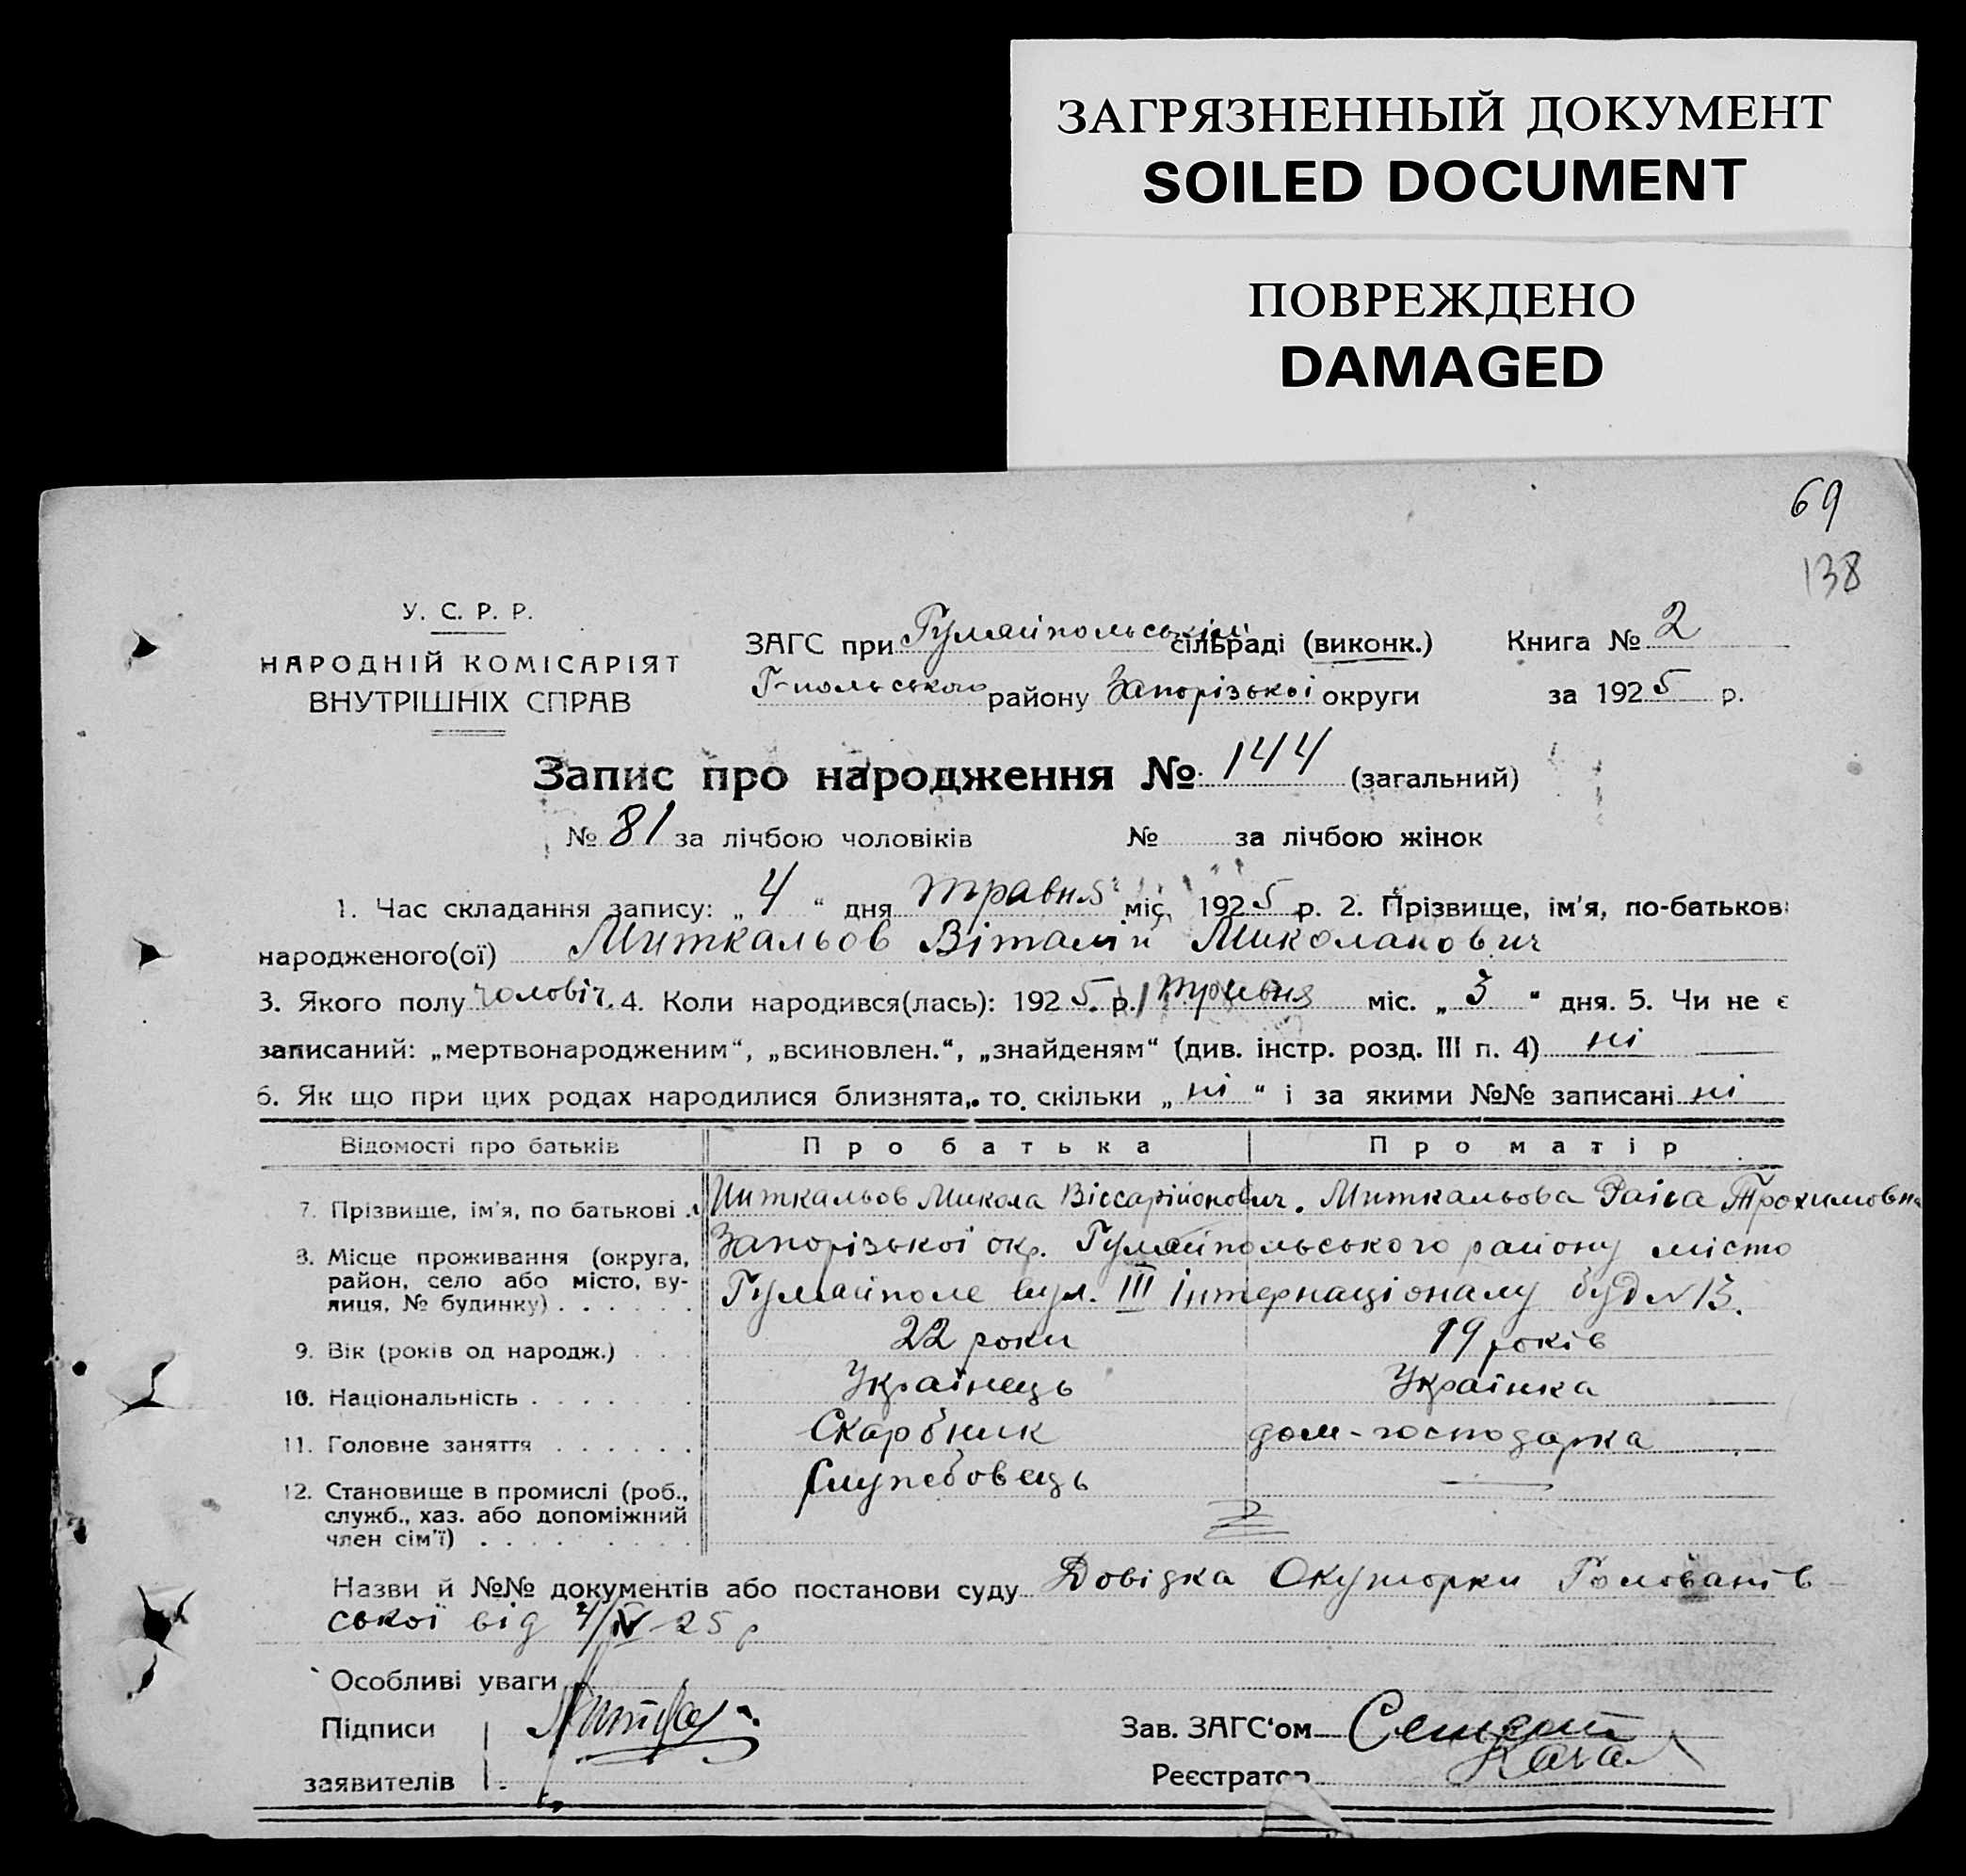 ЗАГРЯЗНЕННЫЙ ДОКУМЕНТ
SOILED DOCUMENT
ПОВРЕЖДЕНО
DAMAGED
69
138
У. С. Р. Р.
НАРОДНІЙ КОМІСАРІЯТ
ВНУТРІШНІХ СПРАВ
ЗАГС при Гуляйпольськім сільраді (виконк.)
Г-польського району Запорізької округи
Книга № 2
за 1925 р.
Запис про народження № 144 (загальний)
№ 81 за лічбою чоловіків № за лічбою жінок
1. Час складання запису: „ 4 “ дня травня міс. 1925 р. 2. Прізвище, ім'я, по-батькові
народженого(ої) Миткальов Віталій Миколайович
3. Якого полу чоловіч. 4. Коли народився(лась): 1925 р. травня міс. „ 3 “ дня. 5. Чи не є
записаний: „мертвонародженим“, „всиновлен.“, „знайденям“ (див. інстр. розд. III п. 4) ні
6. Як що при цих родах народилися близнята, то скільки „ ні “ і за якими №№ записані ні
Відомості про батьків Про батька Про матір
7. Прізвище, ім'я, по батькові Миткальов Микола Віссарійонович. Миткальова Раїса Трохимовна
8. Місце проживання (округа, Запорізької окр. Гуляйпольського району місто
район, село або місто, ву-
лиця, № будинку) Гуляйполе вул. III Інтернаціоналу буд № 13.
9. Вік (років од народж.) 22 роки 19 років
10. Національність Українець Українка
11. Головне заняття Скарбник дом-господарка
12. Становище в промислі (роб., Служебовець
служб., хаз. або допоміжний
член сім'ї)
Назви й №№ документів або постанови суду Довідка
ської від 4/IV 25 р
Особливі уваги
Підписи
заявителів
Зав. ЗАГС'ом
Реєстратор